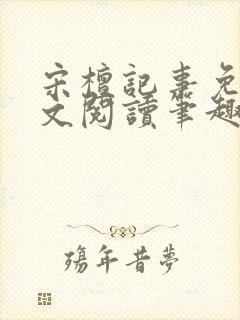 宋檀記事免
文閱讀筆趣
殤年昔夢